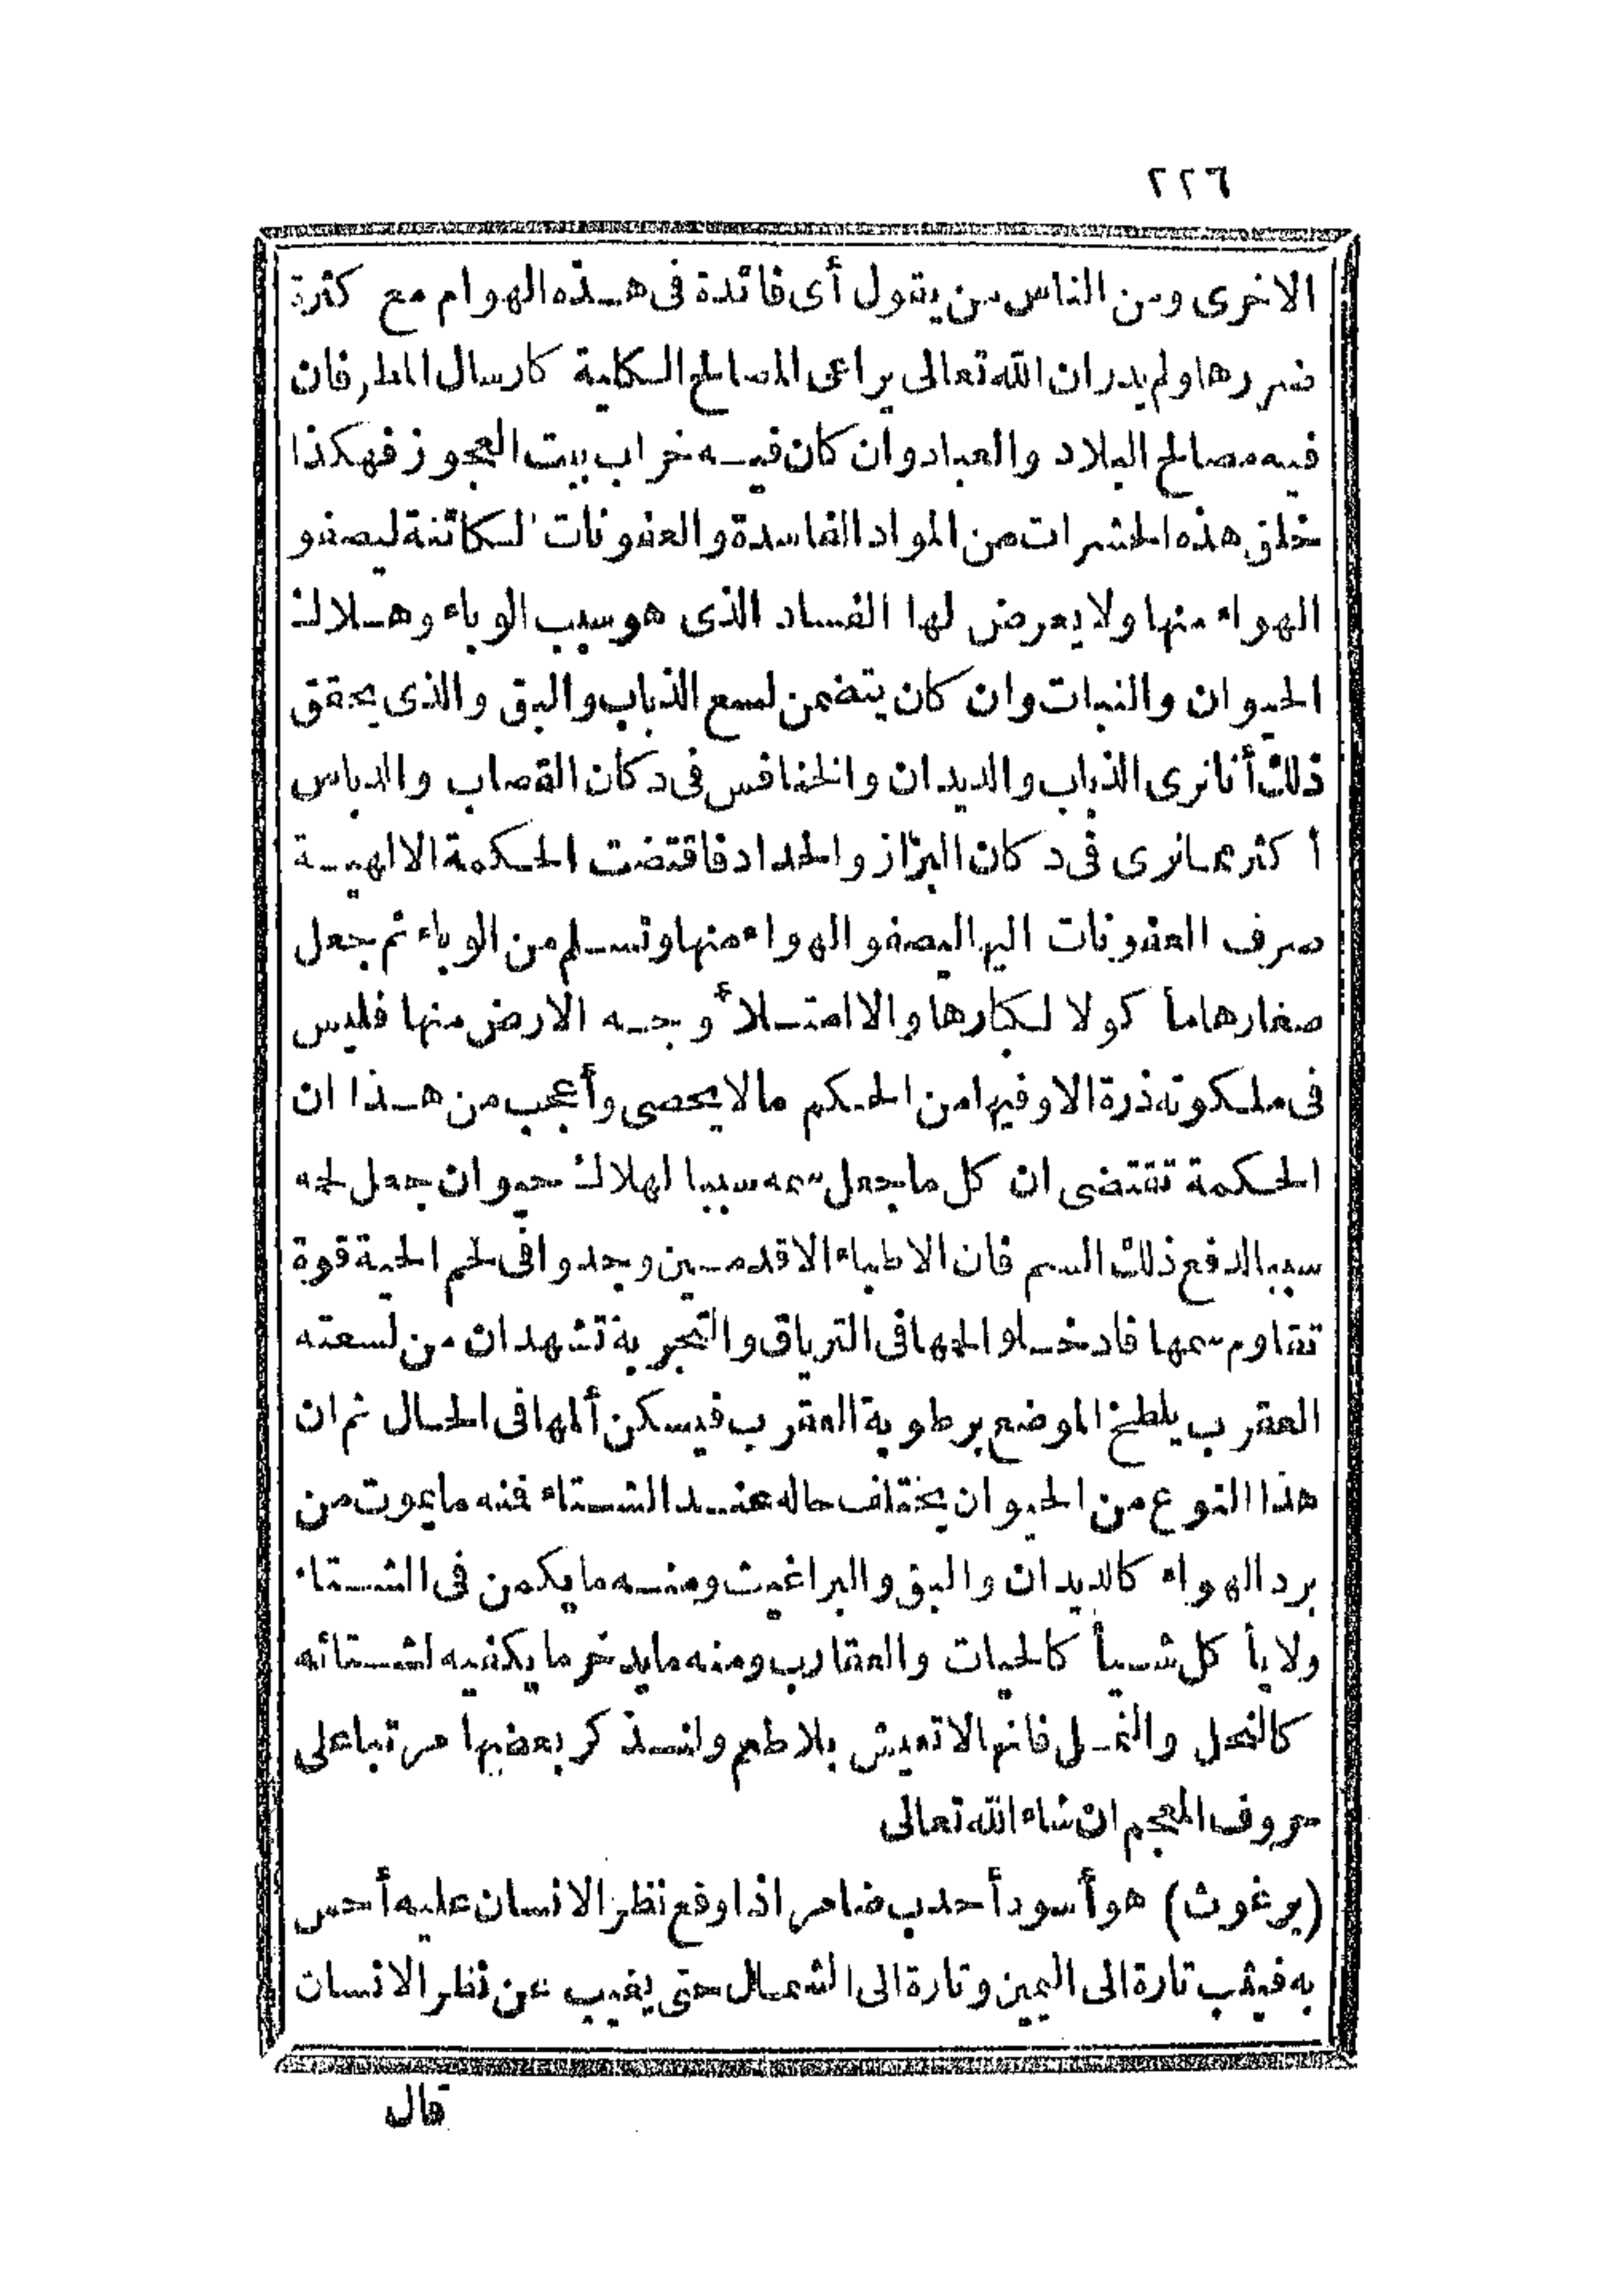 ٢٢٦
الاخرى ومن الناس من يقول أى فائدة فى هذه الهوام مع كثرة
ضررها ولم يدر ان الله تعالى يراعى المصالح الكلية كارسال المطر فان
فيه مصالح البلاد والعباد وان كان فيه خراب بيت العجوز فهكذا
خلق هذه الحشرات من المواد الفاسدة والعفونات الكائنة ليصفو
الهواء منها ولا يعرض لها الفساد الذى هو سبب الوباء وهلاك
الحيوان والنبات وان كان يتضمن لسع الذباب والبق والذى يحقق
ذلك أنا نرى الذباب والديدان والخنافس فى دكان القصاب والدباس
أكثر مما نرى فى دكان البزاز والحداد فاقتضت الحكمة الالهية
صرف العفونات اليها ليصفو الهواء منها وتسلم من الوباء ثم جعل
صغارها مأكولا لكبارها والا امتلأ وجه الارض منها فليس
فى ملكوته ذرة الا وفيها من الحكم ما لا يحصى وأعجب من هذا ان
الحكمة تقتضى ان كل ما يجعل سمه سببا لهلاك حيوان جعل لحمه
سببا لدفع ذلك السم فان الاطباء الاقدمين وجدوا فى لحم الحية قوة
تقاوم سمها فادخلوا لحمها فى الترياق والتجربة تشهد ان من لسعته
العقرب يلطخ الموضع برطوبة العقرب فيسكن ألمها فى الحال ثم ان
هذا النوع من الحيوان يختلف حاله عند الشتاء فمنه ما يموت من
برد الهواء كالديدان والبق والبراغيث ومنه ما يكمن فى الشتاء
ولا يأكل شيأ كالحيات والعقارب ومنه ما يدخر ما يكفيه لشتائه
كالنحل والنمل فانها لا تعيش بلا طعم ولنذكر بعضها مرتبا على
حروف المعجم ان شاء الله تعالى
(برغوث) هو أسود أحدب ضامر اذا وقع نظر الانسان عليه أحس
به فيثب تارة الى اليمين وتارة الى الشمال حتى يغيب عن نظر الانسان
قال